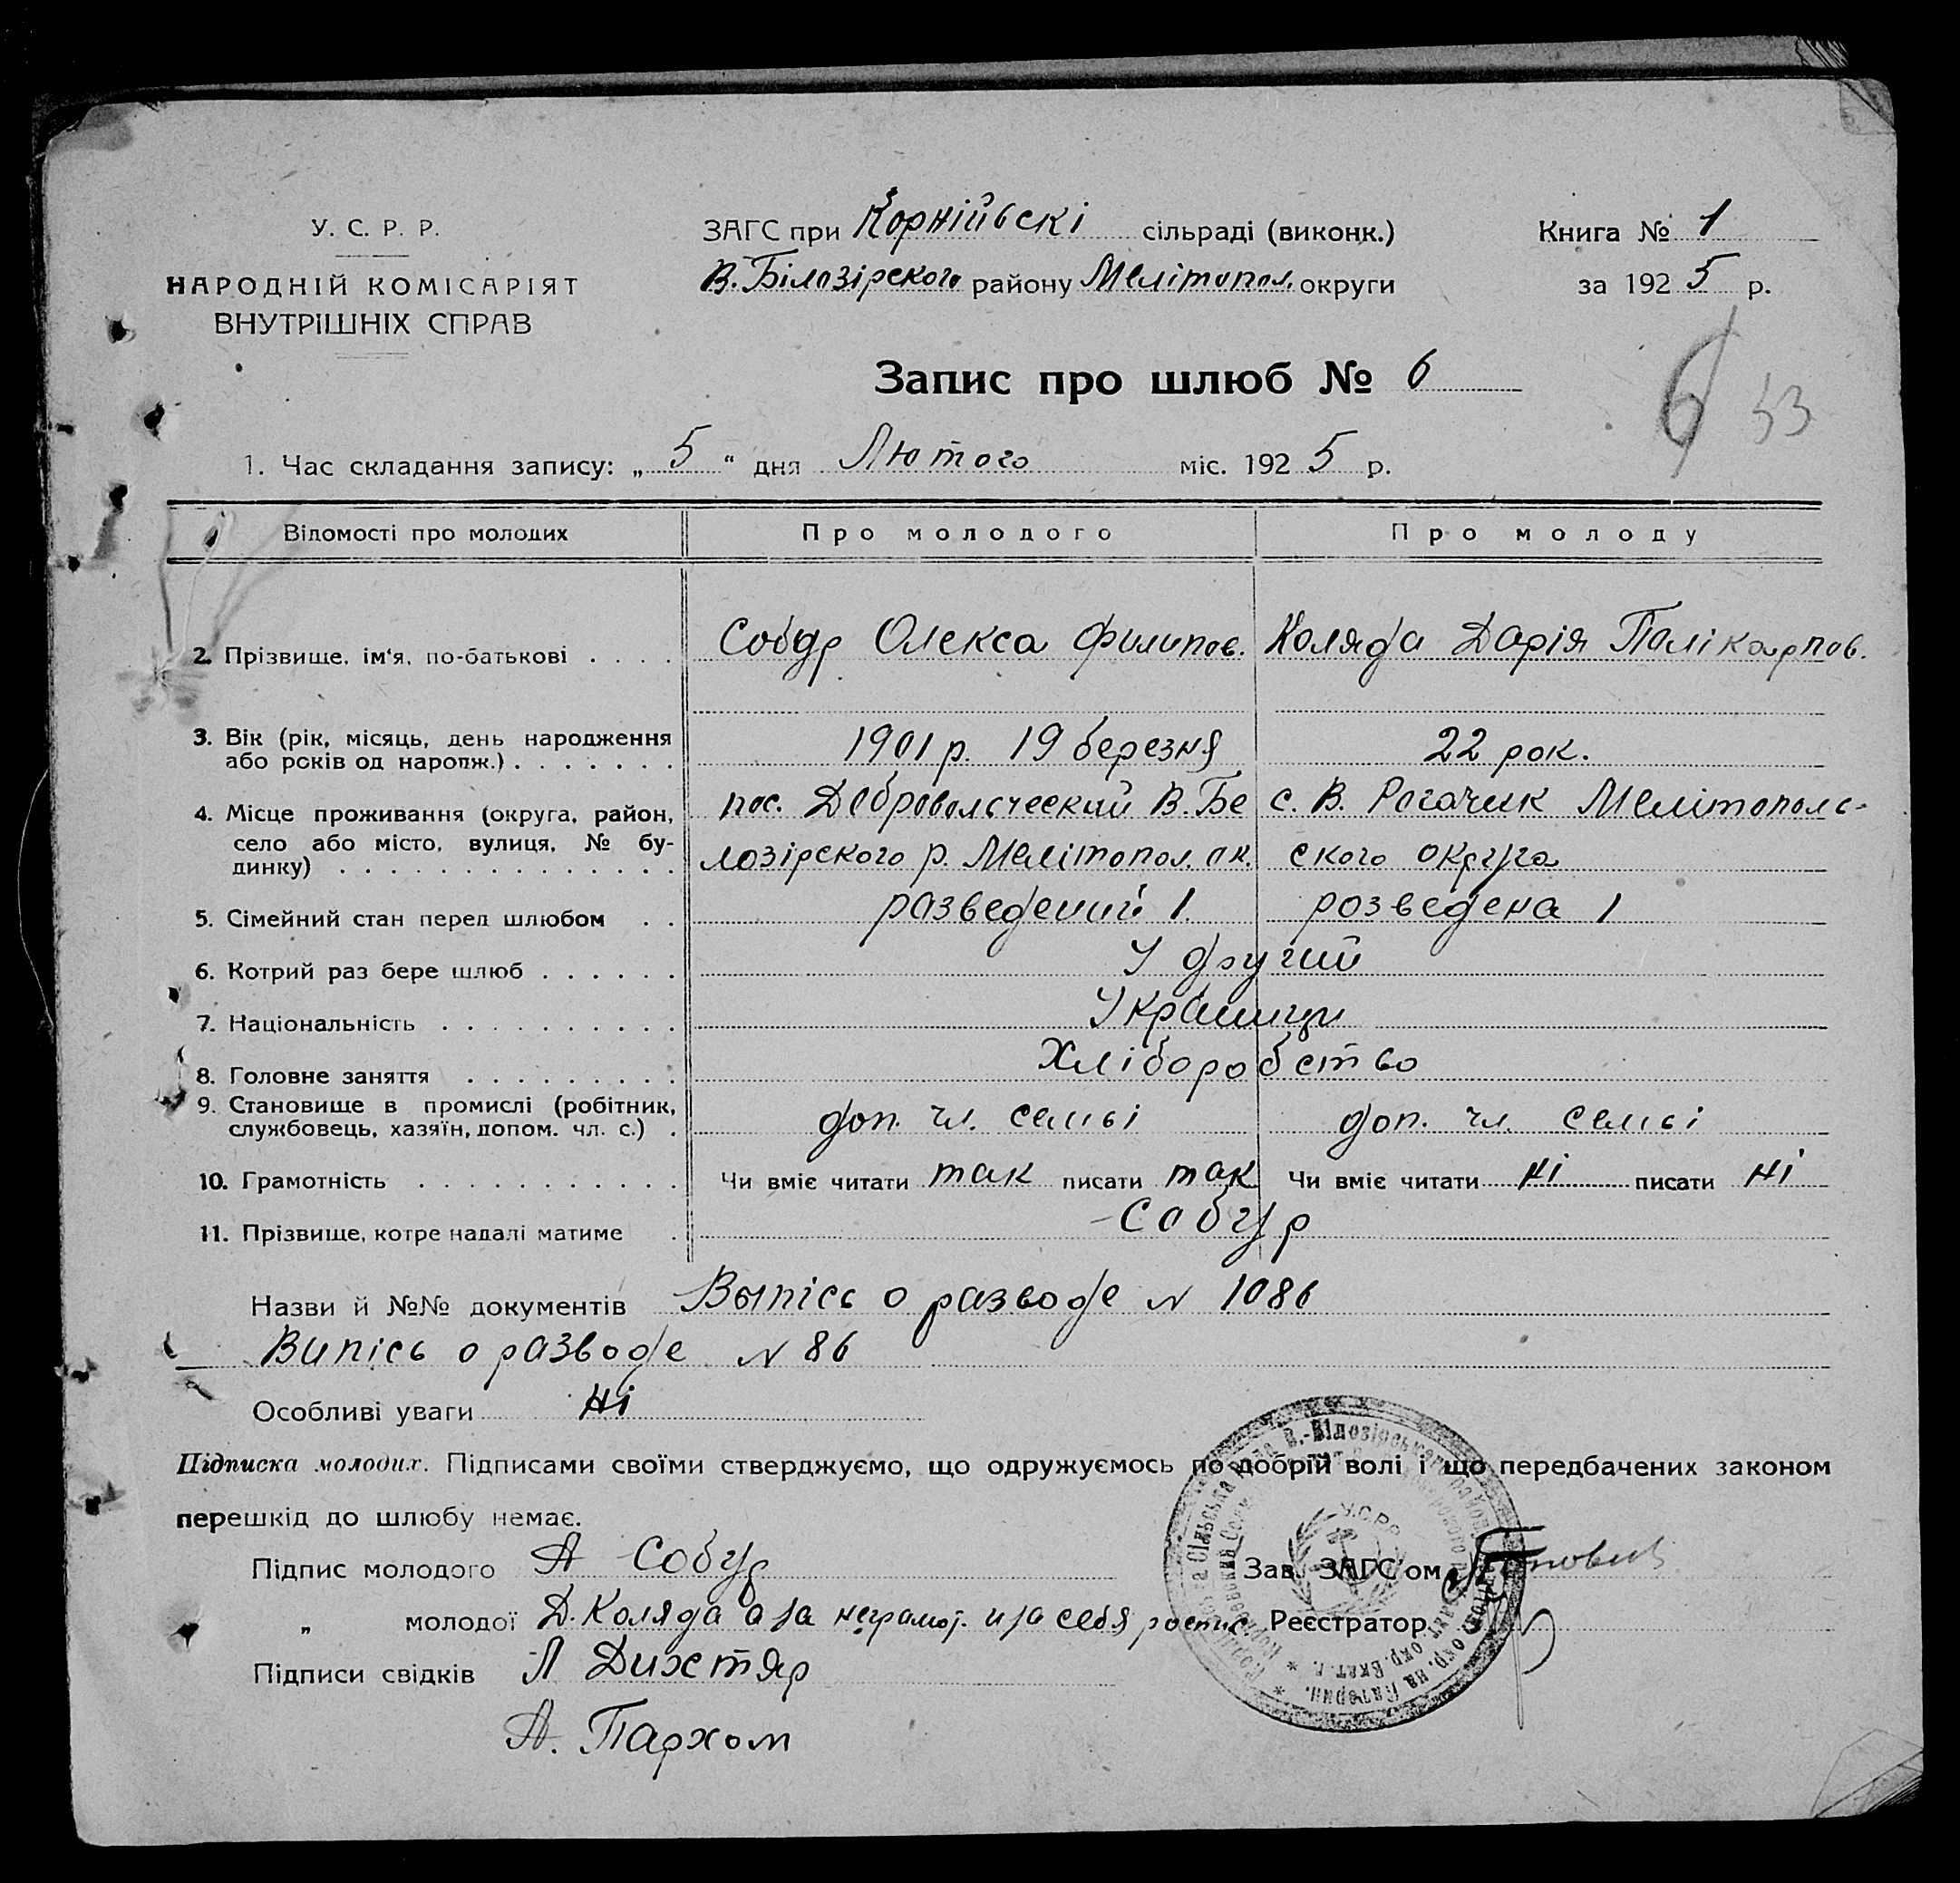 У. С. Р. Р.
НАРОДНІЙ КОМІСАРІЯТ
ВНУТРІШНІХ СПРАВ
ЗАГС при Корнійвскі сільраді (виконк.)
В. Білозірского району Мелітопол. округи
Книга № 1
за 1925 р.
Запис про шлюб № 6
6 53
1. Час складання запису: „ 5 “ дня Лютого міс. 1925 р.
Відомості про молодих Про молодого Про молоду
2. Прізвище, ім‘я, по-батькові . . . . Собур Олекса Филипов. Коляда Дарія Полікарпов.
3. Вік (рік, місяць, день народження
або років од народж.) . . . . . . . 1901 р. 19 березня 22 рок.
4. Місце проживання (округа, район, пос. Добровольческий В. Бе с. В. Рогачик Мелітополь-
село або місто, вулиця, № бу-
динку) . . . . . . . . . . . . . . лозірского р. Мелітопол. ок. ского округа
5. Сімейний стан перед шлюбом . . разведений 1. розведена 1
6. Котрий раз бере шлюб . . . . . . У другий
7. Національність . . . . . . . . . . Украинци
8. Головне заняття . . . . . . . . . Хліборобство
9. Становище в промислі (робітник,
службовець, хазяїн, допом. чл. с.) . доп. чл. семьі доп. чл. семьі
10. Грамотність . . . . . . . . . . . Чи вміє читати так писати так Чи вміє читати ні писати ні
11. Прізвище, котре надалі матиме . Собур
Назви й №№ документів Выпісь о разводе N 1086
Випісь о разводе N 86
Особливі уваги ні
Підписка молодих. Підписами своїми стверджуємо, що одружуємось по добрій волі і що передбачених законом
перешкід до шлюбу немає.
Підпис молодого А Собур
Зав. ЗАГС‘ом
„ молодої Д. Коляда а за неграмот. и за себя роспис.
Реєстратор
Підписи свідків Л Дихтяр
А. Пархом
У.С.Р.Р.